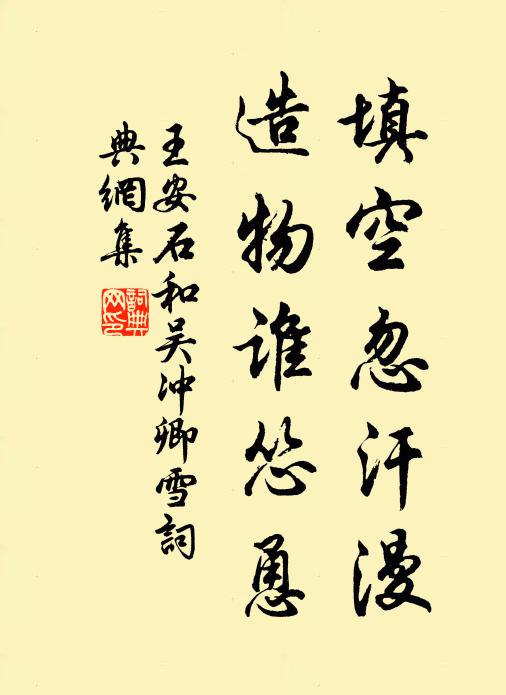 填空忽汗漫
造物谁怂恿
王安石和吴冲卿雪詞
典網集
詞典
网印